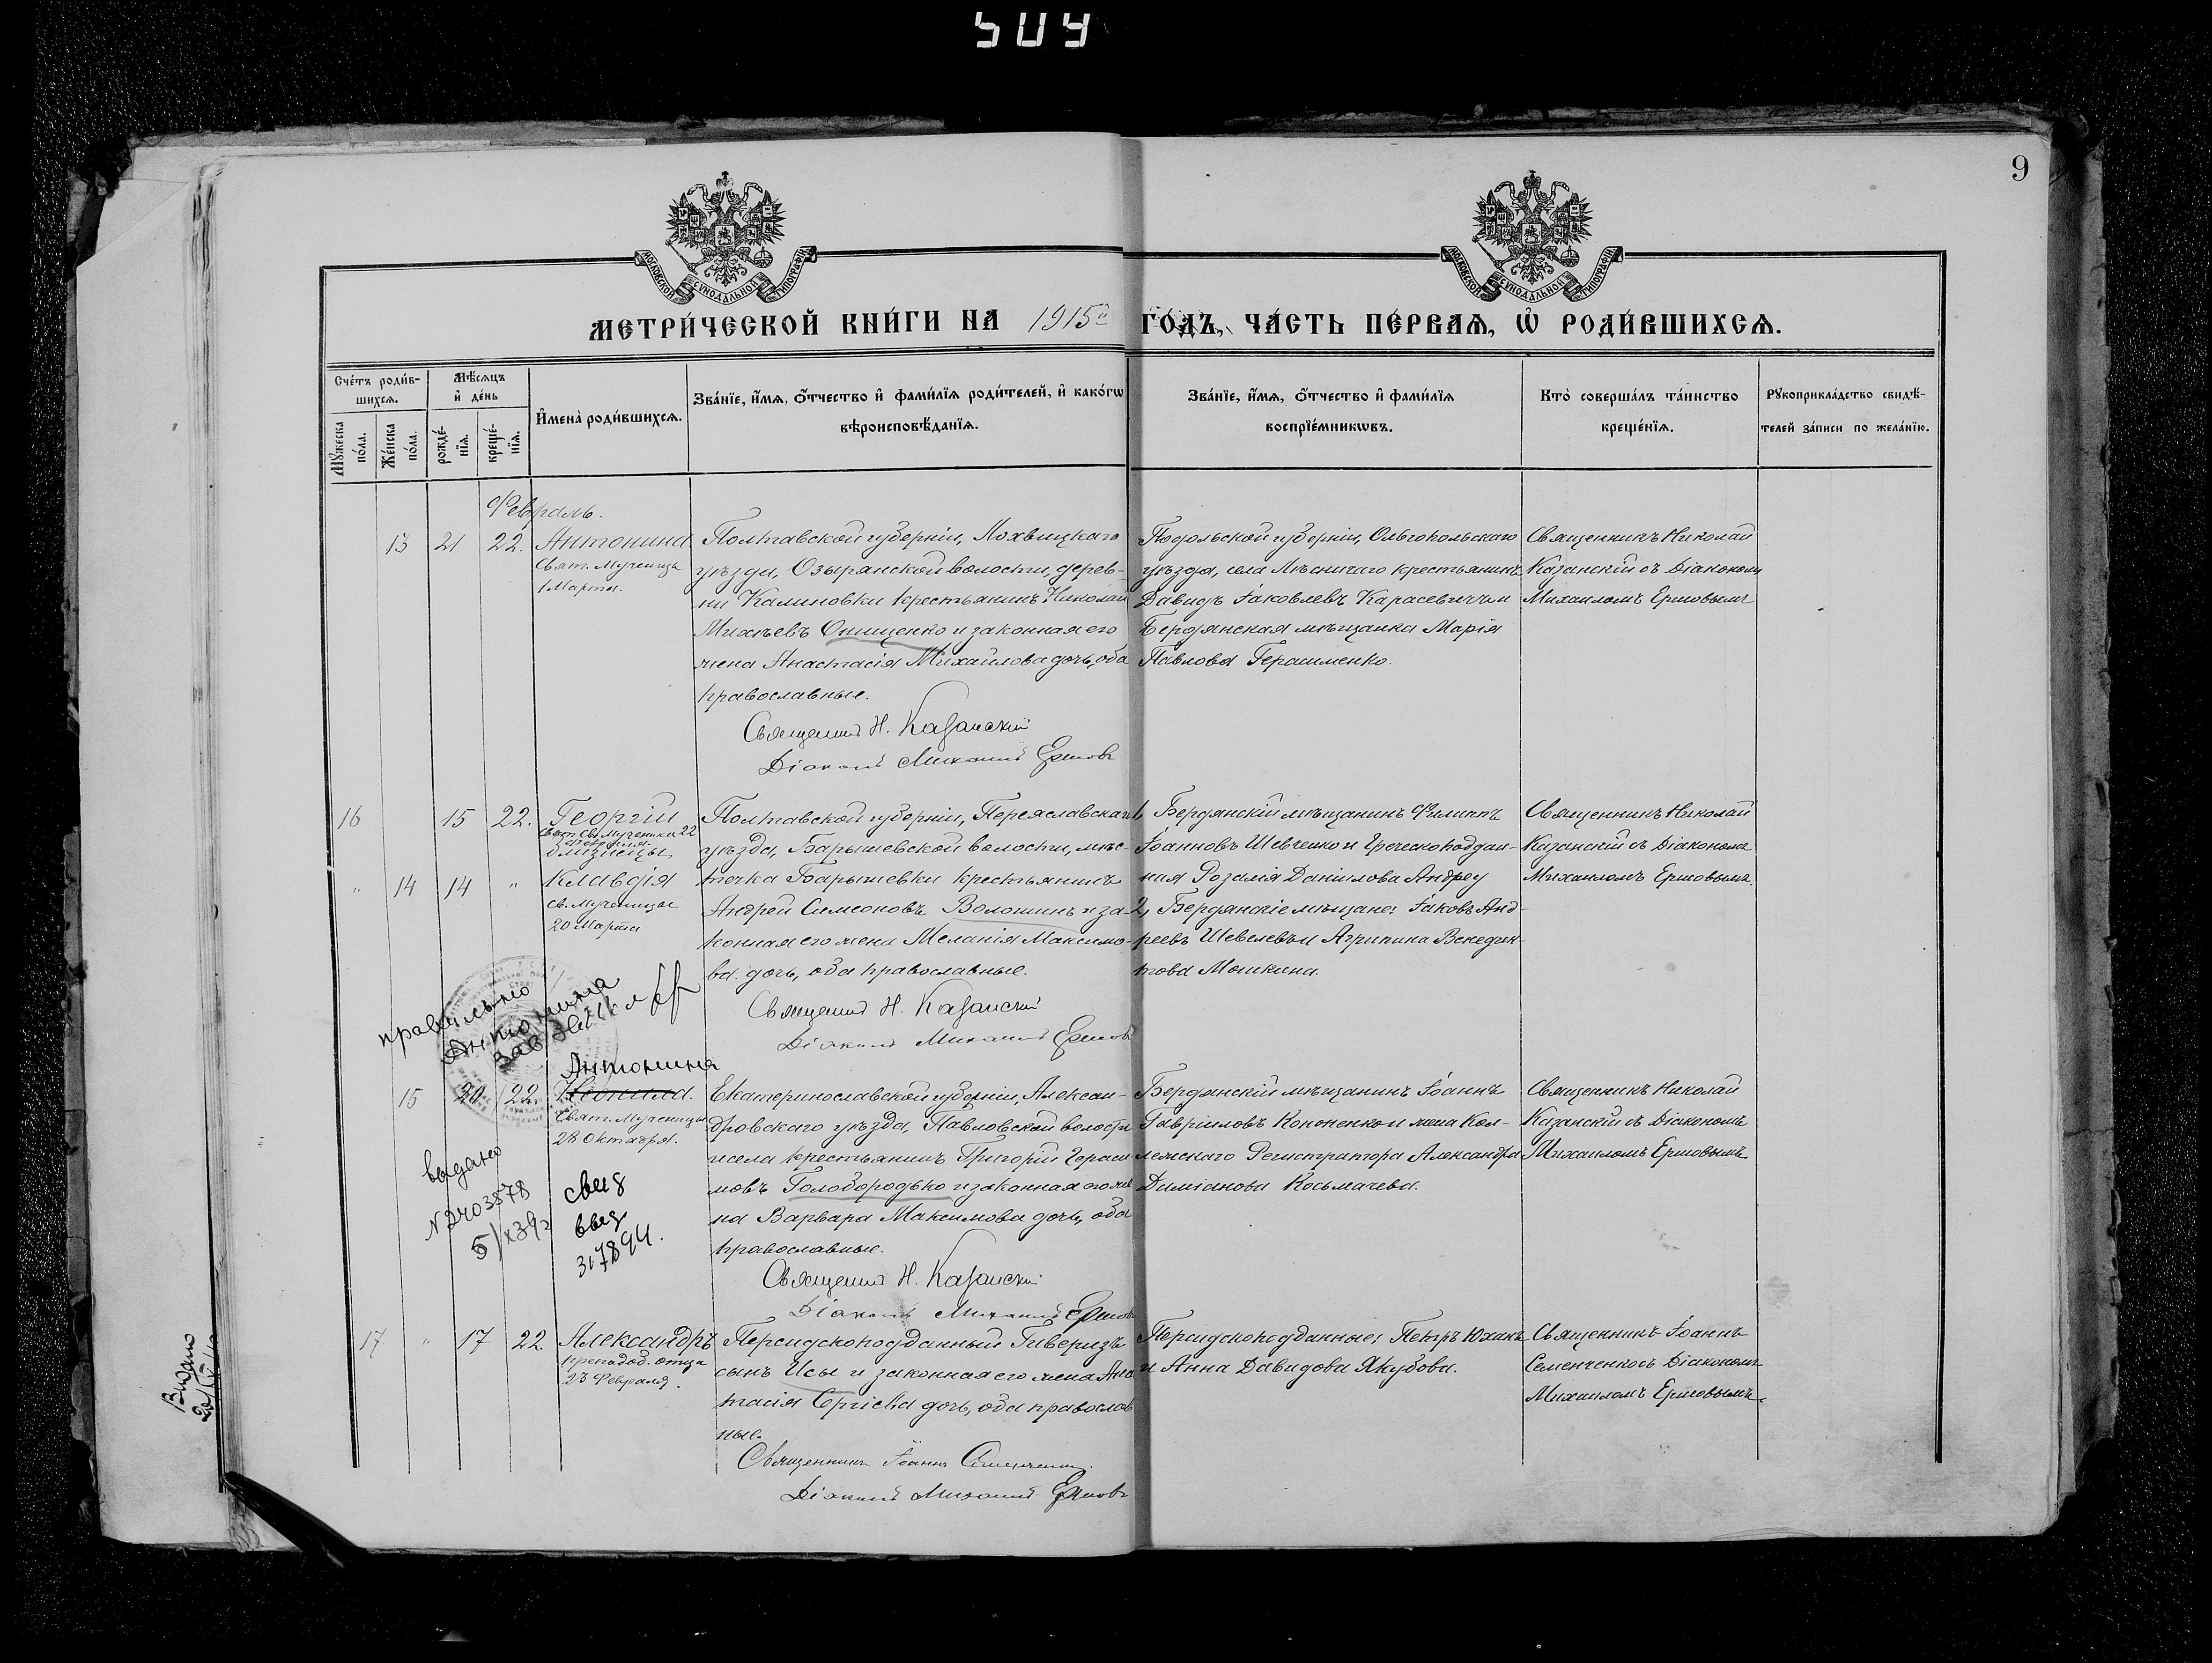 509
9
МОСКОВСКОЙ СУНОДАЛЬНОЙ ТИПОГРАФІИ
МОСКОВСКОЙ СУНОДАЛЬНОЙ ТИПОГРАФІИ
МЕТРИ́ЧЕСКОЙ КНИ́ГИ НА 1915й ГО́ДЪ, ЧА́СТЬ ПЕ́РВАѦ, Ѡ҆ РОДИ́ВШИХСѦ.
Счéтъ роди́в-
шихсѧ.
Мꙋжеска по́ла.
Же́нска по́ла.
Мѣ́сѧцъ
и҆ де́нь
рожде́-
нїѧ.
креще́-
нїѧ.
И҆мена̀ роди́вшихсѧ.
Зва́нїе, и҆́мѧ, о҆́тчество и҆ фами́лїѧ роди́телей, и҆ како́гѡ
вѣроисповѣ́данїѧ.
Зва́нїе, и҆́мѧ, о҆́тчество и҆ фами́лїѧ
воспрїе́мникѡвъ.
Кто̀ соверша́лъ та́инство
креще́нїѧ.
Рꙋкоприкла́дство свидѣ́-
телей за́писи по жела́нїю.
Февраль.
13 21 22. Антонина
Свят. Мученицы
1 Марта.
Полтавской губерніи, Лохвицкаго
уѣзда, Озырянской волости, дерев-
ни Калиновки крестьянинъ Николай
Михѣевъ Онищенко и законная его
жена Анастасія Михайлова дочь, оба
православные.
Священник Н. Казанскій
Діаконъ Михаилъ Ершовъ
Подольской губерніи, Ольгопольскаго
уѣзда, села Лѣсничаго крестьянинъ
Давидъ Іаковлевъ Карасевичъ и
Бердянская мѣщанка Марія
Павлова Герасименко.
Священникъ Николай
Казанскій съ Діакономъ
Михаиломъ Ершовымъ
16 15 22. Георгій
Свят. Мученика 22
Февраля.
близнецы
" 14 14 " Клавдія
св. Мученицы
20 Марта
Полтавской губерніи, Переяславскаго
уѣзда, Барышевской волости, мѣс-
течка Барышевки крестьянинъ
Андрей Симеоновъ Волошинъ и за-
конная его жена Меланія Максимо-
ва дочь, оба православные.
Священник Н. Казанскій
Діаконъ Михаилъ Ершовъ
1, Бердянскій мѣщанинъ Филиппъ
Іоанновъ Шевченко и Греческоподдан-
ная Розалія Даніилова Андреу
2, Бердянскіе мѣщане: Іаковъ Анд-
реевъ Шевелевъ и Агрипина Венедик-
това Мошкина.
Священникъ Николай
Казанскій съ Діакономъ
Михаиломъ Ершовымъ.
правильно
Антонина
Антонина
15 20 22. Неонила.
Свят. Мученицы
28 Октября.
выдано
N 2403878
5/X 39г
свид
выд
317894.
Екатеринославской губерніи, Алексан-
дровскаго уѣзда, Павловской волости
и села крестьянинъ Григорій Гераси
мовъ Голобородько и законная его же
на Варвара Максимова дочь, оба
православные.
Священник Н. Казанскій
Діаконъ Михаилъ Ершовъ
Бердянскій мѣщанинъ Іоаннъ
Гавриловъ Кононенко и жена Кол-
лежскаго Регистратора Александра
Даміанова Косьмачева.
Священникъ Николай
Казанскій съ Діакономъ
Михаиломъ Ершовымъ.
Видано
17 " 17 22. Александръ
преподоб. отца
23 Февраля.
Персидскоподданный Гиверизъ
сынъ Исы и законная его жена Ана
тасія Сергіева дочь, оба православ
ные.
Священникъ Іоаннъ Семенченко.
Діаконъ Михаилъ Ершовъ
Персидскоподданные: Петръ Юханъ
и Анна Давидова Якубова.
Священникъ Іоаннъ
Семенченко съ Діакономъ
Михаиломъ Ершовымъ.